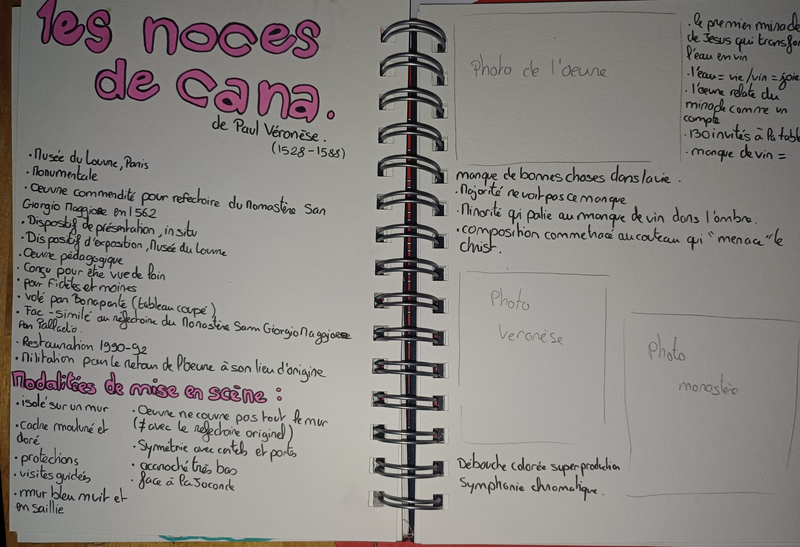 les noces
de cana.
de Paul Véronèse.
(1528-1588)
• Musée du Louvre, Paris
• Monumentale
• Oeuvre commendité pour refectoire du Monastère San
Giorgio Maggiore en 1562
• Dispositif de présentation, in situ
• Dispositif d'exposition, Musée du Louvre
• Oeuvre pédagogique
• Conçu pour être vue de loin
• pour fidèles et moines
• volé par Bonaparte (tableau coupé)
• Fac-similé au réfectoire du Monastère Sam Giorgio Maggiore
par Palladio.
• Restauration 1990-92
• Militation pour le retour de l'oeuvre à son lieu d'origine
Modalitées de mise en scène :
• isolé sur un mur
• cadre mouluré et
doré
• protections
• visites guidés
• mur bleu nuit et
en saillie
• Oeuvre ne couvre pas tout le mur
(≠ avec le refectoire originel)
• Symétrie avec cartels et portes
• accroché très bas
• face à la Joconde
Photo de l'oeuvre
• le premier miracle
de Jesus qui transfor
l'eau en vin
• l'eau = vie / vin = joie
• l'oeuvre relate du
miracle comme un
compte
• 130 invités à la table
• manque de vin =
manque de bonnes choses dans la vie.
• Majorité ne voit pas ce manque
• Minorité qui palie au manque de vin dans l'ombre.
• composition comme tracé au couteau qui "menace" le
christ.
Photo
Veronèse
Photo
monastère
Débauche colorée superproduction
Symphonie chromatique.